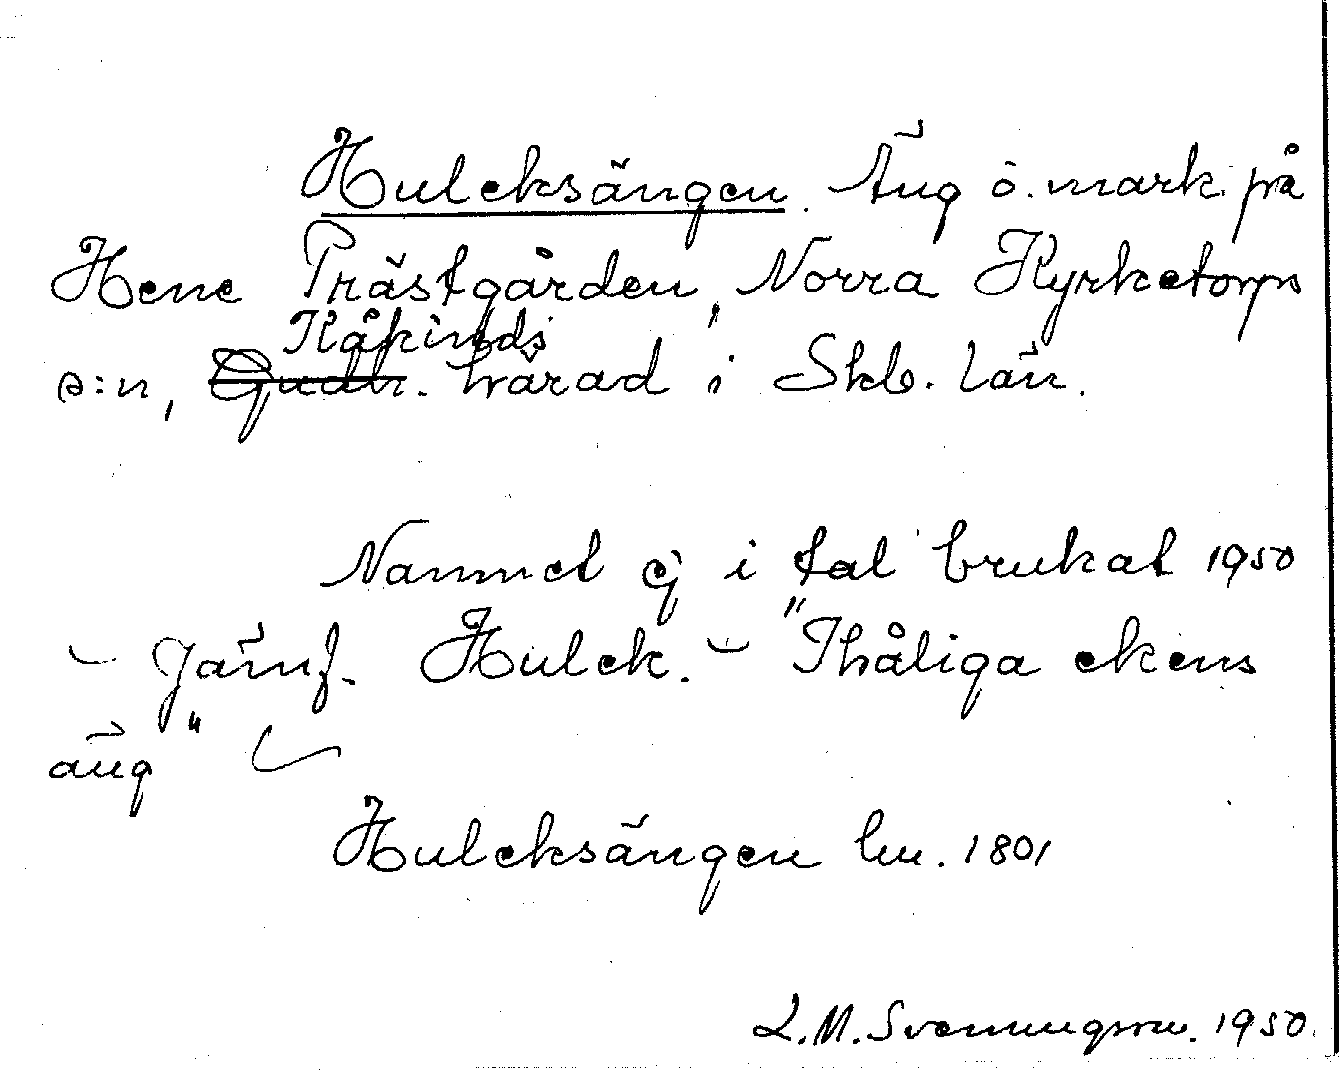 Hulcksängen. Äng o. mark på
Hene Prästgården, Norra Kyrketorps
Kåkinds
s:n, Gudh. härad i Skb. län.
Namnet ej i tal brukat 1950
– Jämf. Hulck. – "Ihåliga ekens
äng"
Hulcksängen lm. 1801
L.M. Svenningson. 1950.